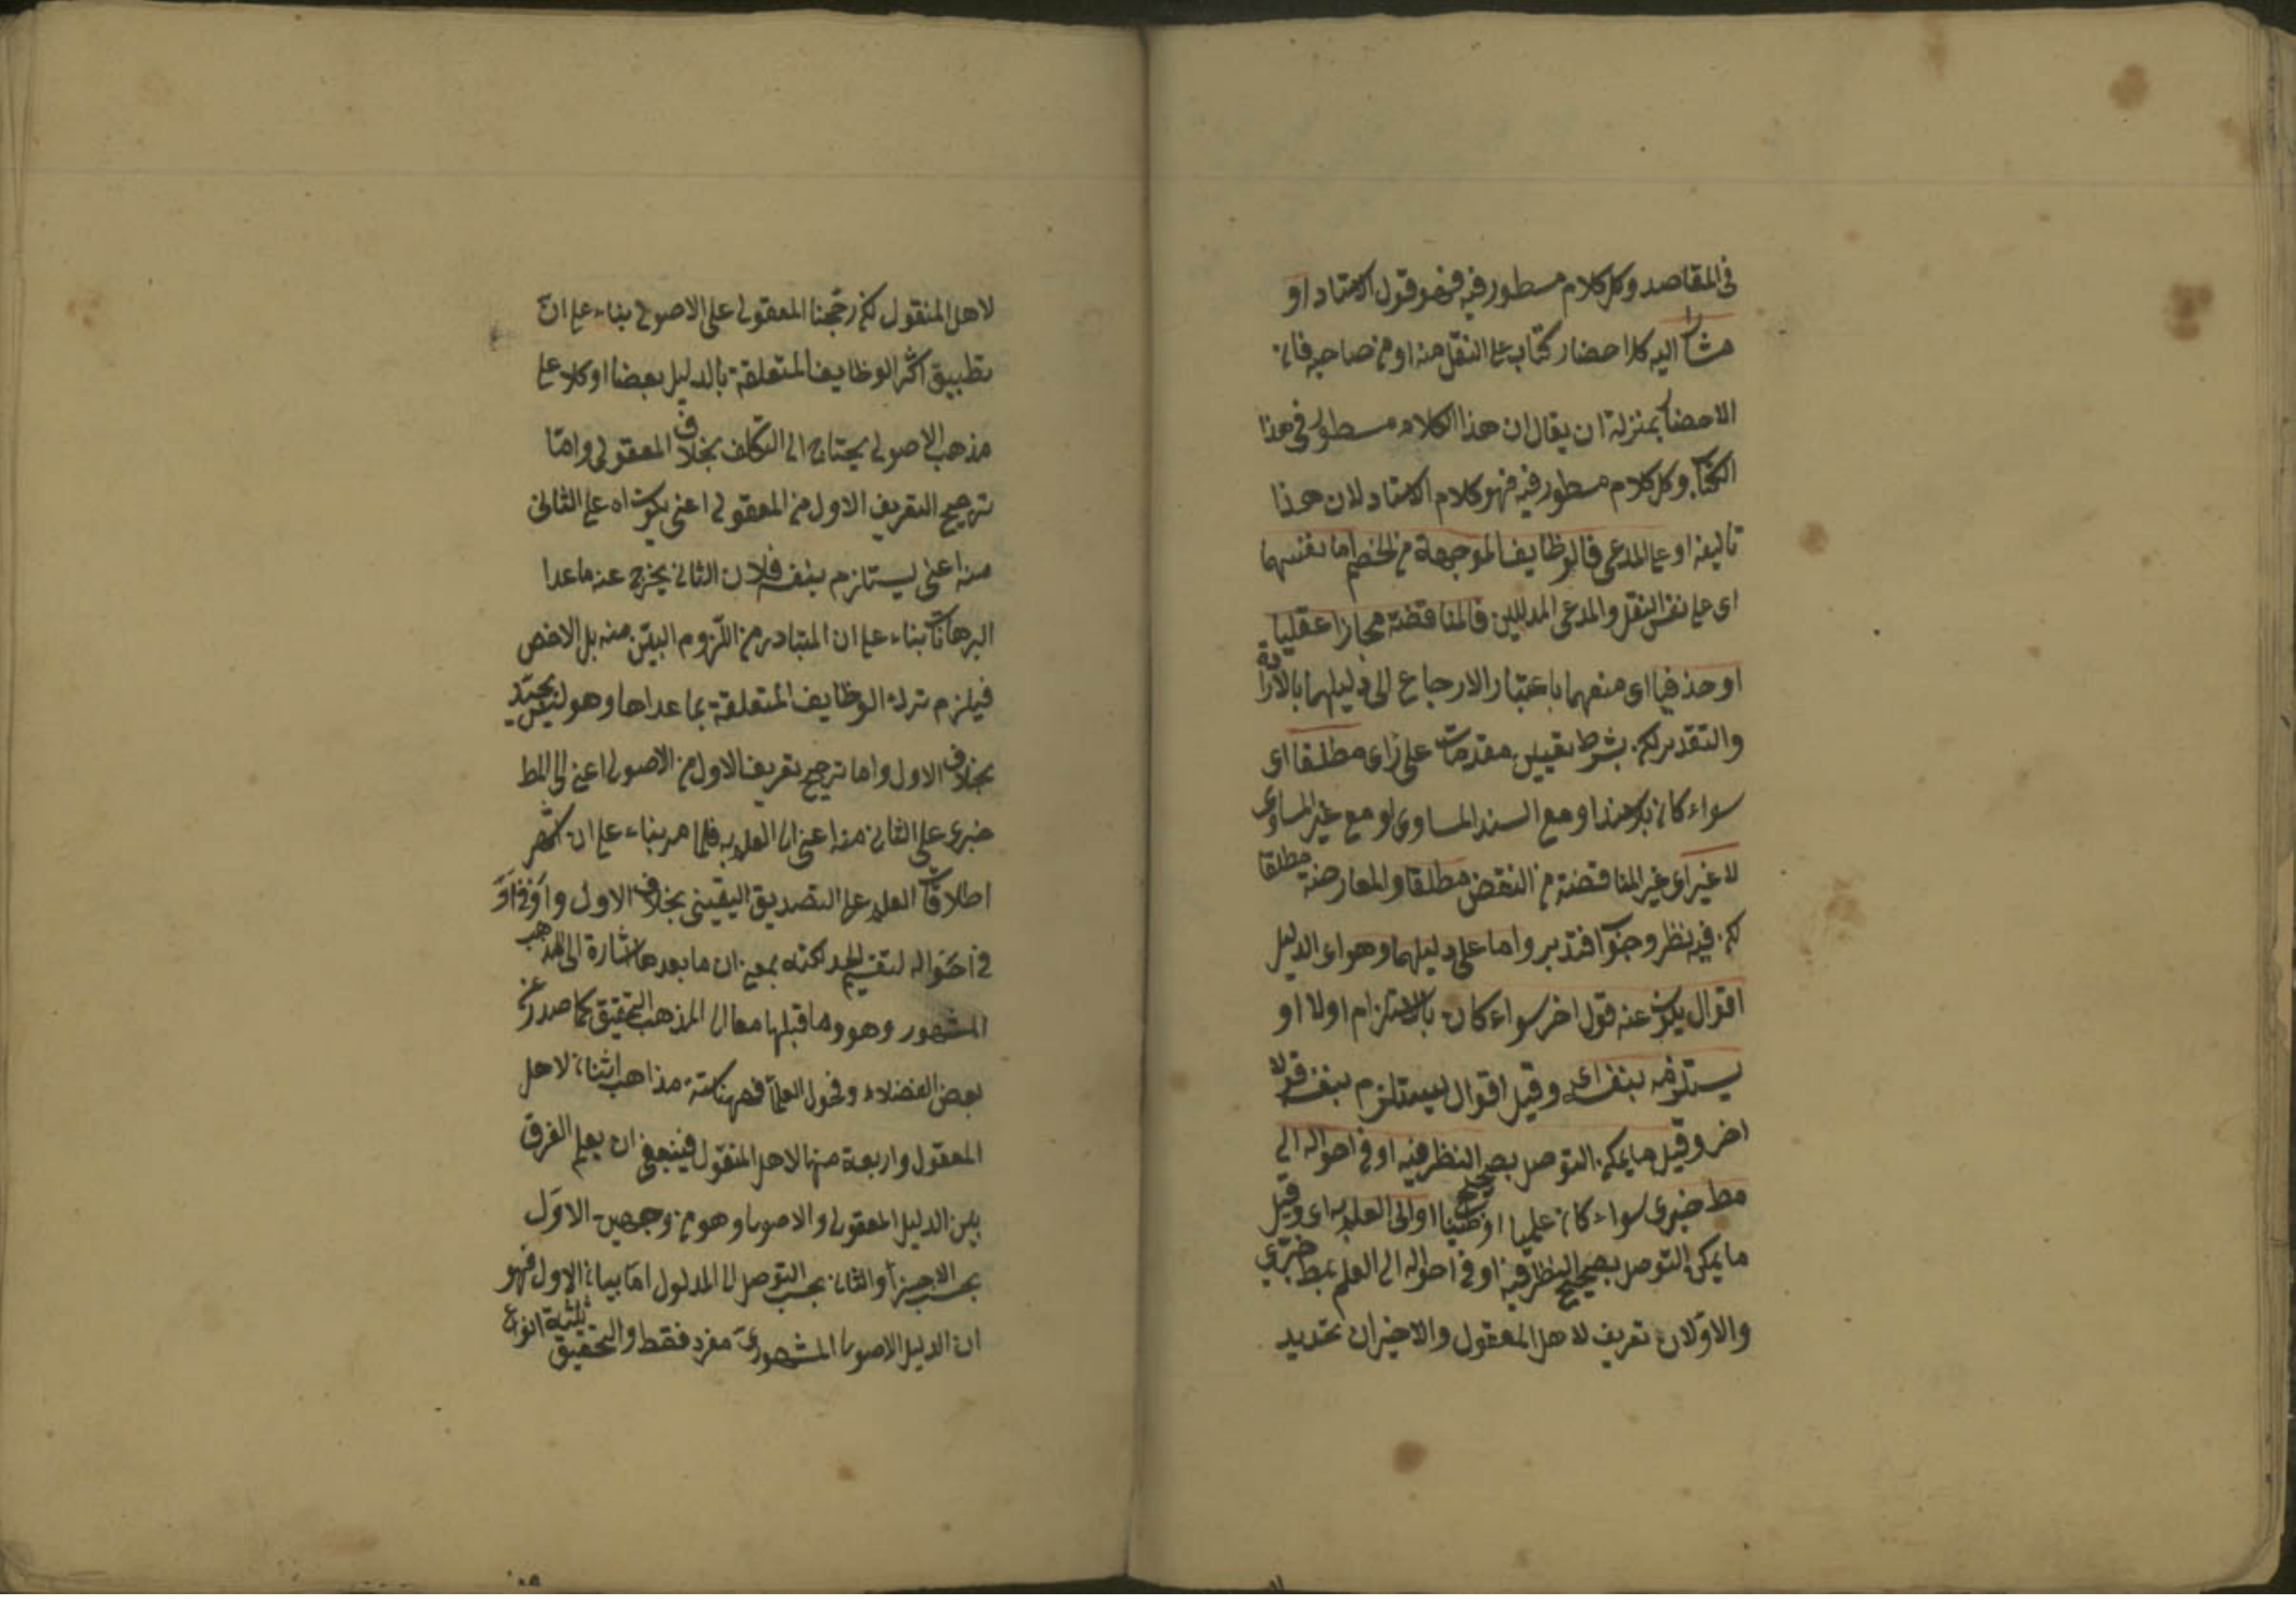 فى المقاصد وكل كلام مسطور فيه فهو قول الاستاد او
مشارا اليه كاحضار كتاب على النقل منه او من صاحبه فان
الاحضار بمنزلة ان يقال ان هذا الكلام مسطور فى هذا
الكتاب وكل كلام مسطور فيه فهو كلام الاستاد لان هذا
تاليفه او على المدعى فالوظايف الموجهة من الخصم اما بنفسهما
اى على نفس النقل والمدعى المدللين فالمناقضة مجازا عقليا
او حذفيا اى منعهما باعتبار الارجاع الى دليلهما بالارادة
والتقدير لكن بشرط تعيين مقدمات على رأى مطلقا اى
سواء كان بلا سند او مع السند المساوى او مع غير المساوى
لا غير اى غير المناقضة من النقض مطلقا والمعارضة مطلقا
لكن فيه نظر وجوا فتدبر واما على دليلهما وهو اى الدليل
اقوال يكون عنه قول اخر سواء كان بالاستلزام اولا او
يستلزمه بنفسه اى وقيل اقوال يستلزم بنفسه قولا
اخر وقيل ما يمكن التوصل بصحيح النظر فيه او فى احواله الى
مط خبرى سواء كان علميا او ظنيا او الى العلم به اى وقيل
ما يمكن التوصل بصحيح النظر فيه او فى احواله الى العلم بمط خبرى
والاولان تعريف لاهل المعقول والاخيران تحديد
لاهل المنقول لكن رجحنا المعقولى على الاصولى بناء على ان
تطبيق اكثر الوظايف المتعلقة بالدليل بعضا او كلا على
مذهب الاصولى يحتاج الى التكلف بخلاف المعقولى واما
ترجيح التعريف الاول من المعقولى اعنى يكون اه على الثانى
منه اعنى يستلزم بنفسه فلان الثانى يخرج عنه ما عدا
البرهانات بناء على ان المتبادر من اللزوم البين منه بل الاخص
فيلزم ترك الوظايف المتعلقة بما عداها وهو ليس بجيد
بخلاف الاول واما ترجيح تعريف الاول من الاصولى اعنى الى المط
خبرى على الثانى منه اعنى الى العلم به فلما مر بناء على ان اكثر
اطلاقات العلم على التصديق اليقينى بخلاف الاول واو فى او
فى احواله لتقسيم الحد لكنه بمعنى ان ما بعدها اشارة الى المذهب
المشهور وهو وما قبلها معا الى المذهب التحقيق كما صدر عن
بعض الفضلاء وفحول العلماء فههنا ستة مذاهب اثنان لاهل
المعقول واربعة منها لاهل المنقول فينبغى ان يعلم الفرق
بين الدليل المعقولى والاصولى وهو من وجهين الاول
بحسب الاجزاء والثانى بحسب التوصل الى المدلول اما بيان الاول فهو
ان الدليل الاصولى المشهورى مفرد فقط والتحقيق ثلثة انواع